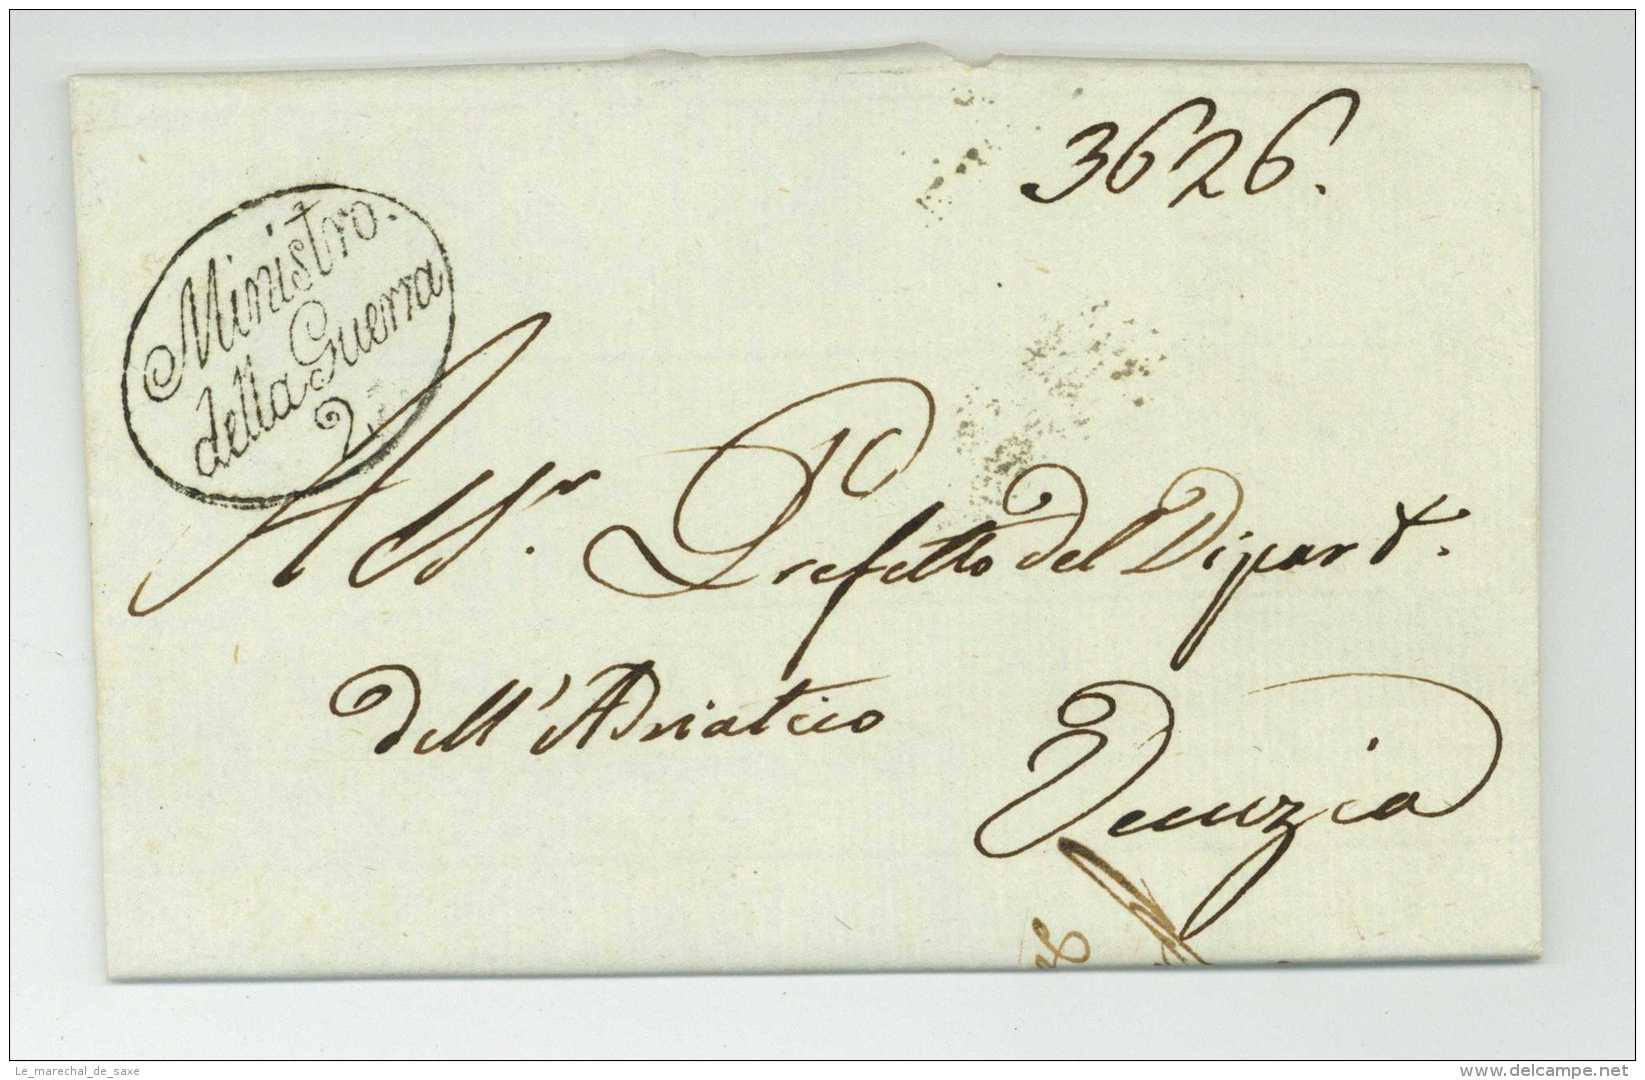 3626.
Ministro.
della Guerra
2.
Al Sr. Prefetto del Dipart.
dell'Adriatico
Venezia
Le_marechal_de_saxe
www.delcampe.net